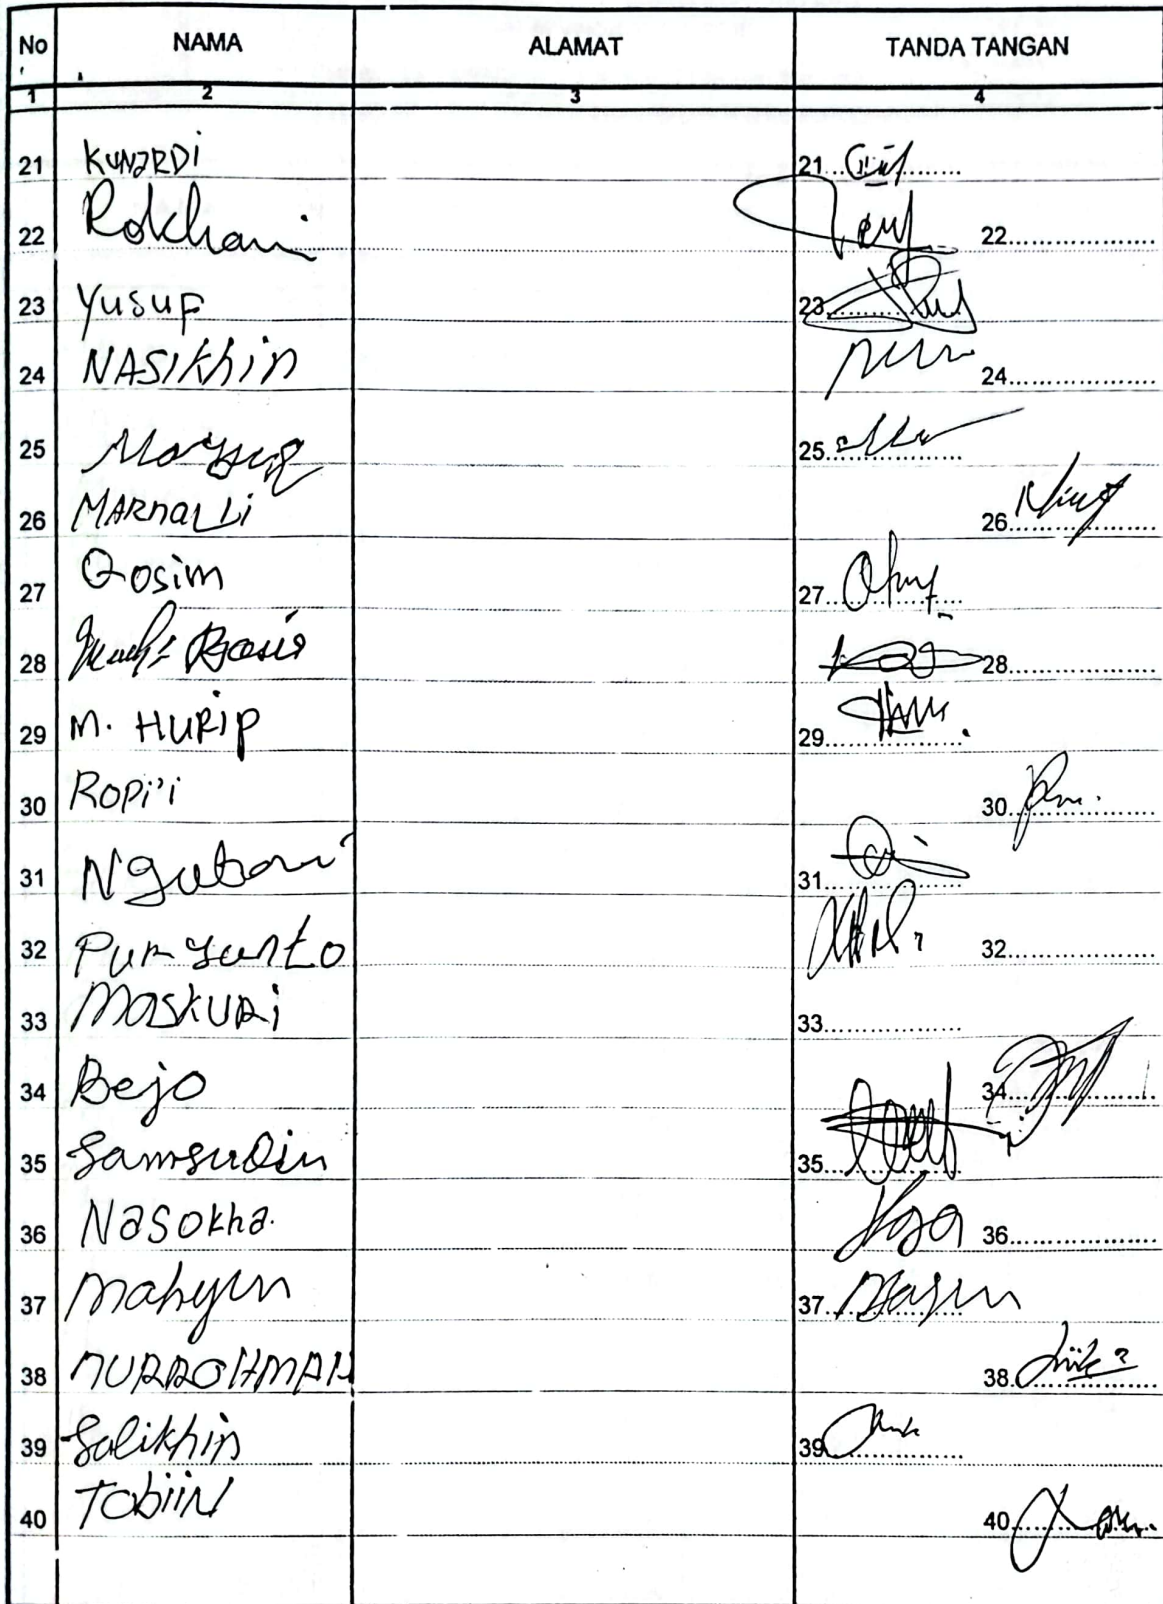 No NAMA ALAMAT TANDA TANGAN
1 2 3 4
21 KUNARDI 21
22 Rokhani 22
23 Yusup 23
24 NASIKhin 24
25 25
26 MARnaLLi 26
27 Qosim 27
28 Basir 28
29 M. HURip 29
30 Ropi'i 30
31 Ngutoni 31
32 Puryanto 32
33 MASKURi 33
34 Bejo 34
35 Samsudin 35
36 Nasokha. 36
37 Mahyun 37
38 NURROHMAH 38
39 Solikhin 39
40 TobiiN 40